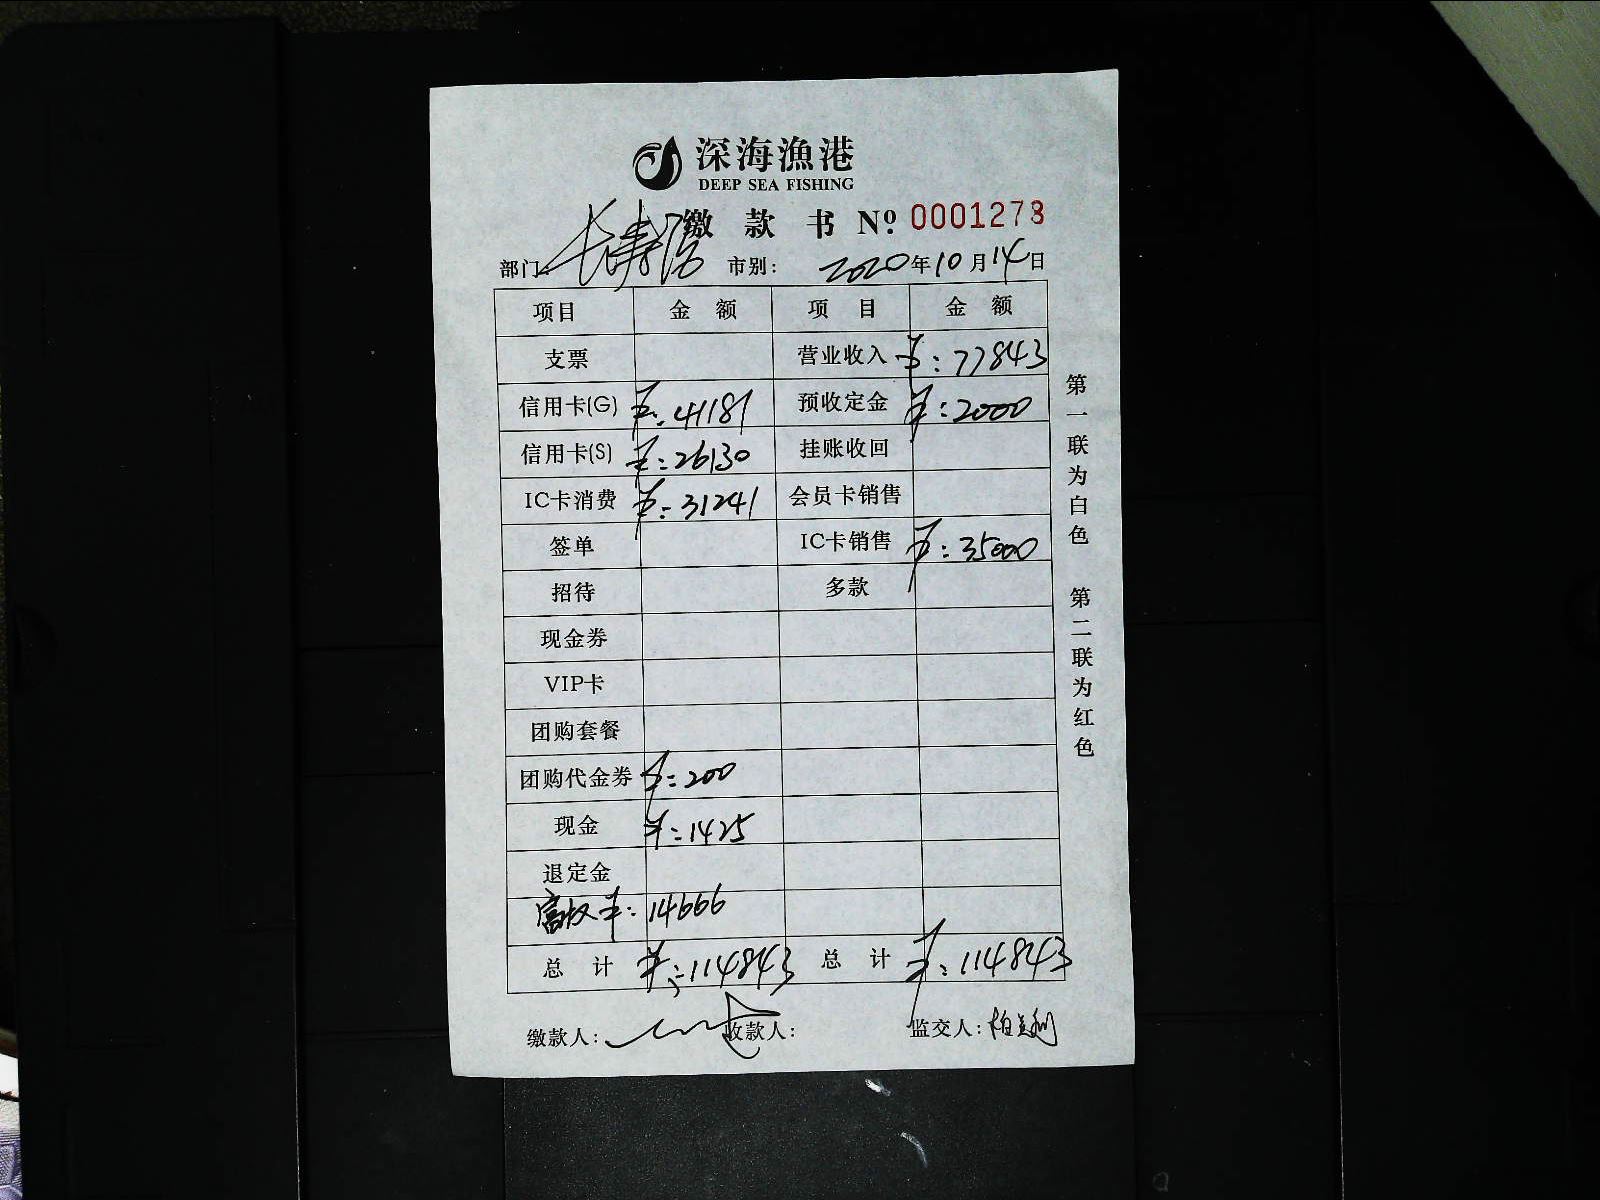 深海漁港
DEEP SEA FISHING
缴款书 Nº 0001273
部门: 市别: 2020年10月14日
项目 金额 项目 金额
支票 营业收入 ¥:77843
信用卡(G) ¥:41181 预收定金 ¥:2000
信用卡(S) ¥:26130 挂账收回
IC卡消费 ¥:31241 会员卡销售
签单 IC卡销售 ¥:35000
招待 多款
现金券
VIP卡
团购套餐
团购代金券 ¥:200
现金 ¥:1425
退定金
¥:14666
总计 ¥:114843 总计 ¥:114843
缴款人: 收款人: 监交人:
第一联为白色 第二联为红色